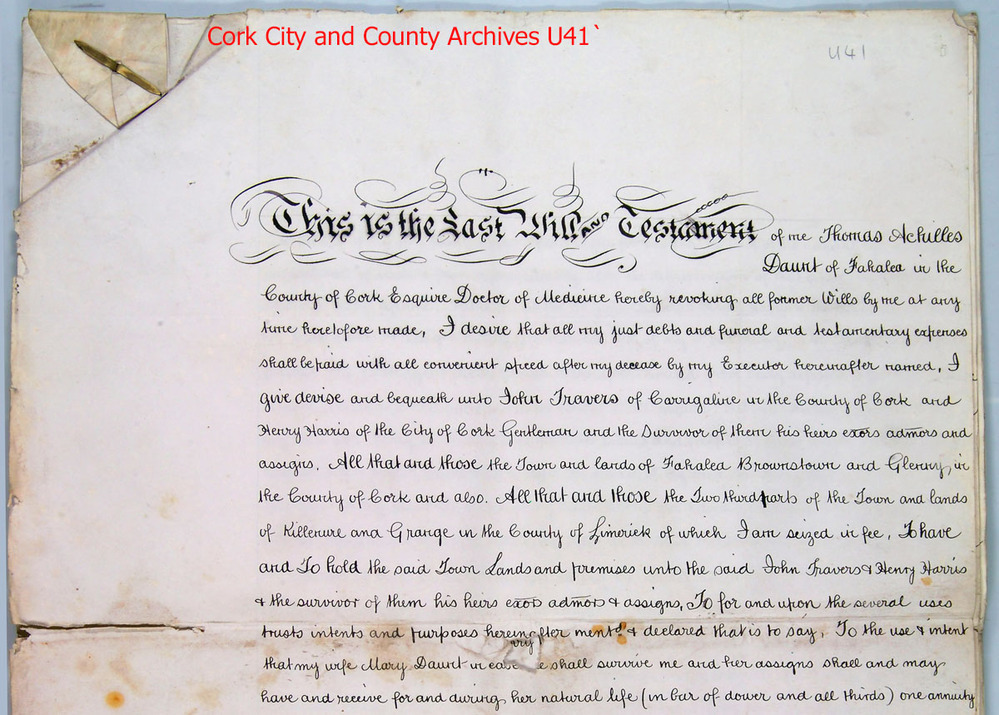 Cork City and County Archives U41`
U41
This is the Last Will and Testament of me Thomas Achilles
Daunt of Fahalea in the
County of Cork Esquire Doctor of Medicine hereby revoking all former Wills by me at any
time heretofore made, I desire that all my just debts and funeral and testamentary expenses
shall be paid with all convenient speed after my decease by my Executor hereinafter named, I
give devise and bequeath unto John Travers of Carrigaline in the County of Cork and
Henry Harris of the City of Cork Gentleman and the Survivor of them his heirs exors admors and
assigns, All that and those the Town and lands of Fahalea Brownstown and Glenny, in
the County of Cork and also. All that and those the Two third parts of the Town and lands
of Killerure and Grange in the County of Limerick of which I am seized in fee, To have
and To hold the said Town Lands and premises unto the said John Travers & Henry Harris
& the survivor of them his heirs exors admors & assigns, To for and upon the several uses
trusts intents and purposes hereinafter mentd & declared that is to say, To the use & intent
that my wife Mary Daunt in case shall survive me and her assigns shall and may
have and receive for and during her natural life (in bar of dower and all thirds) one annuity